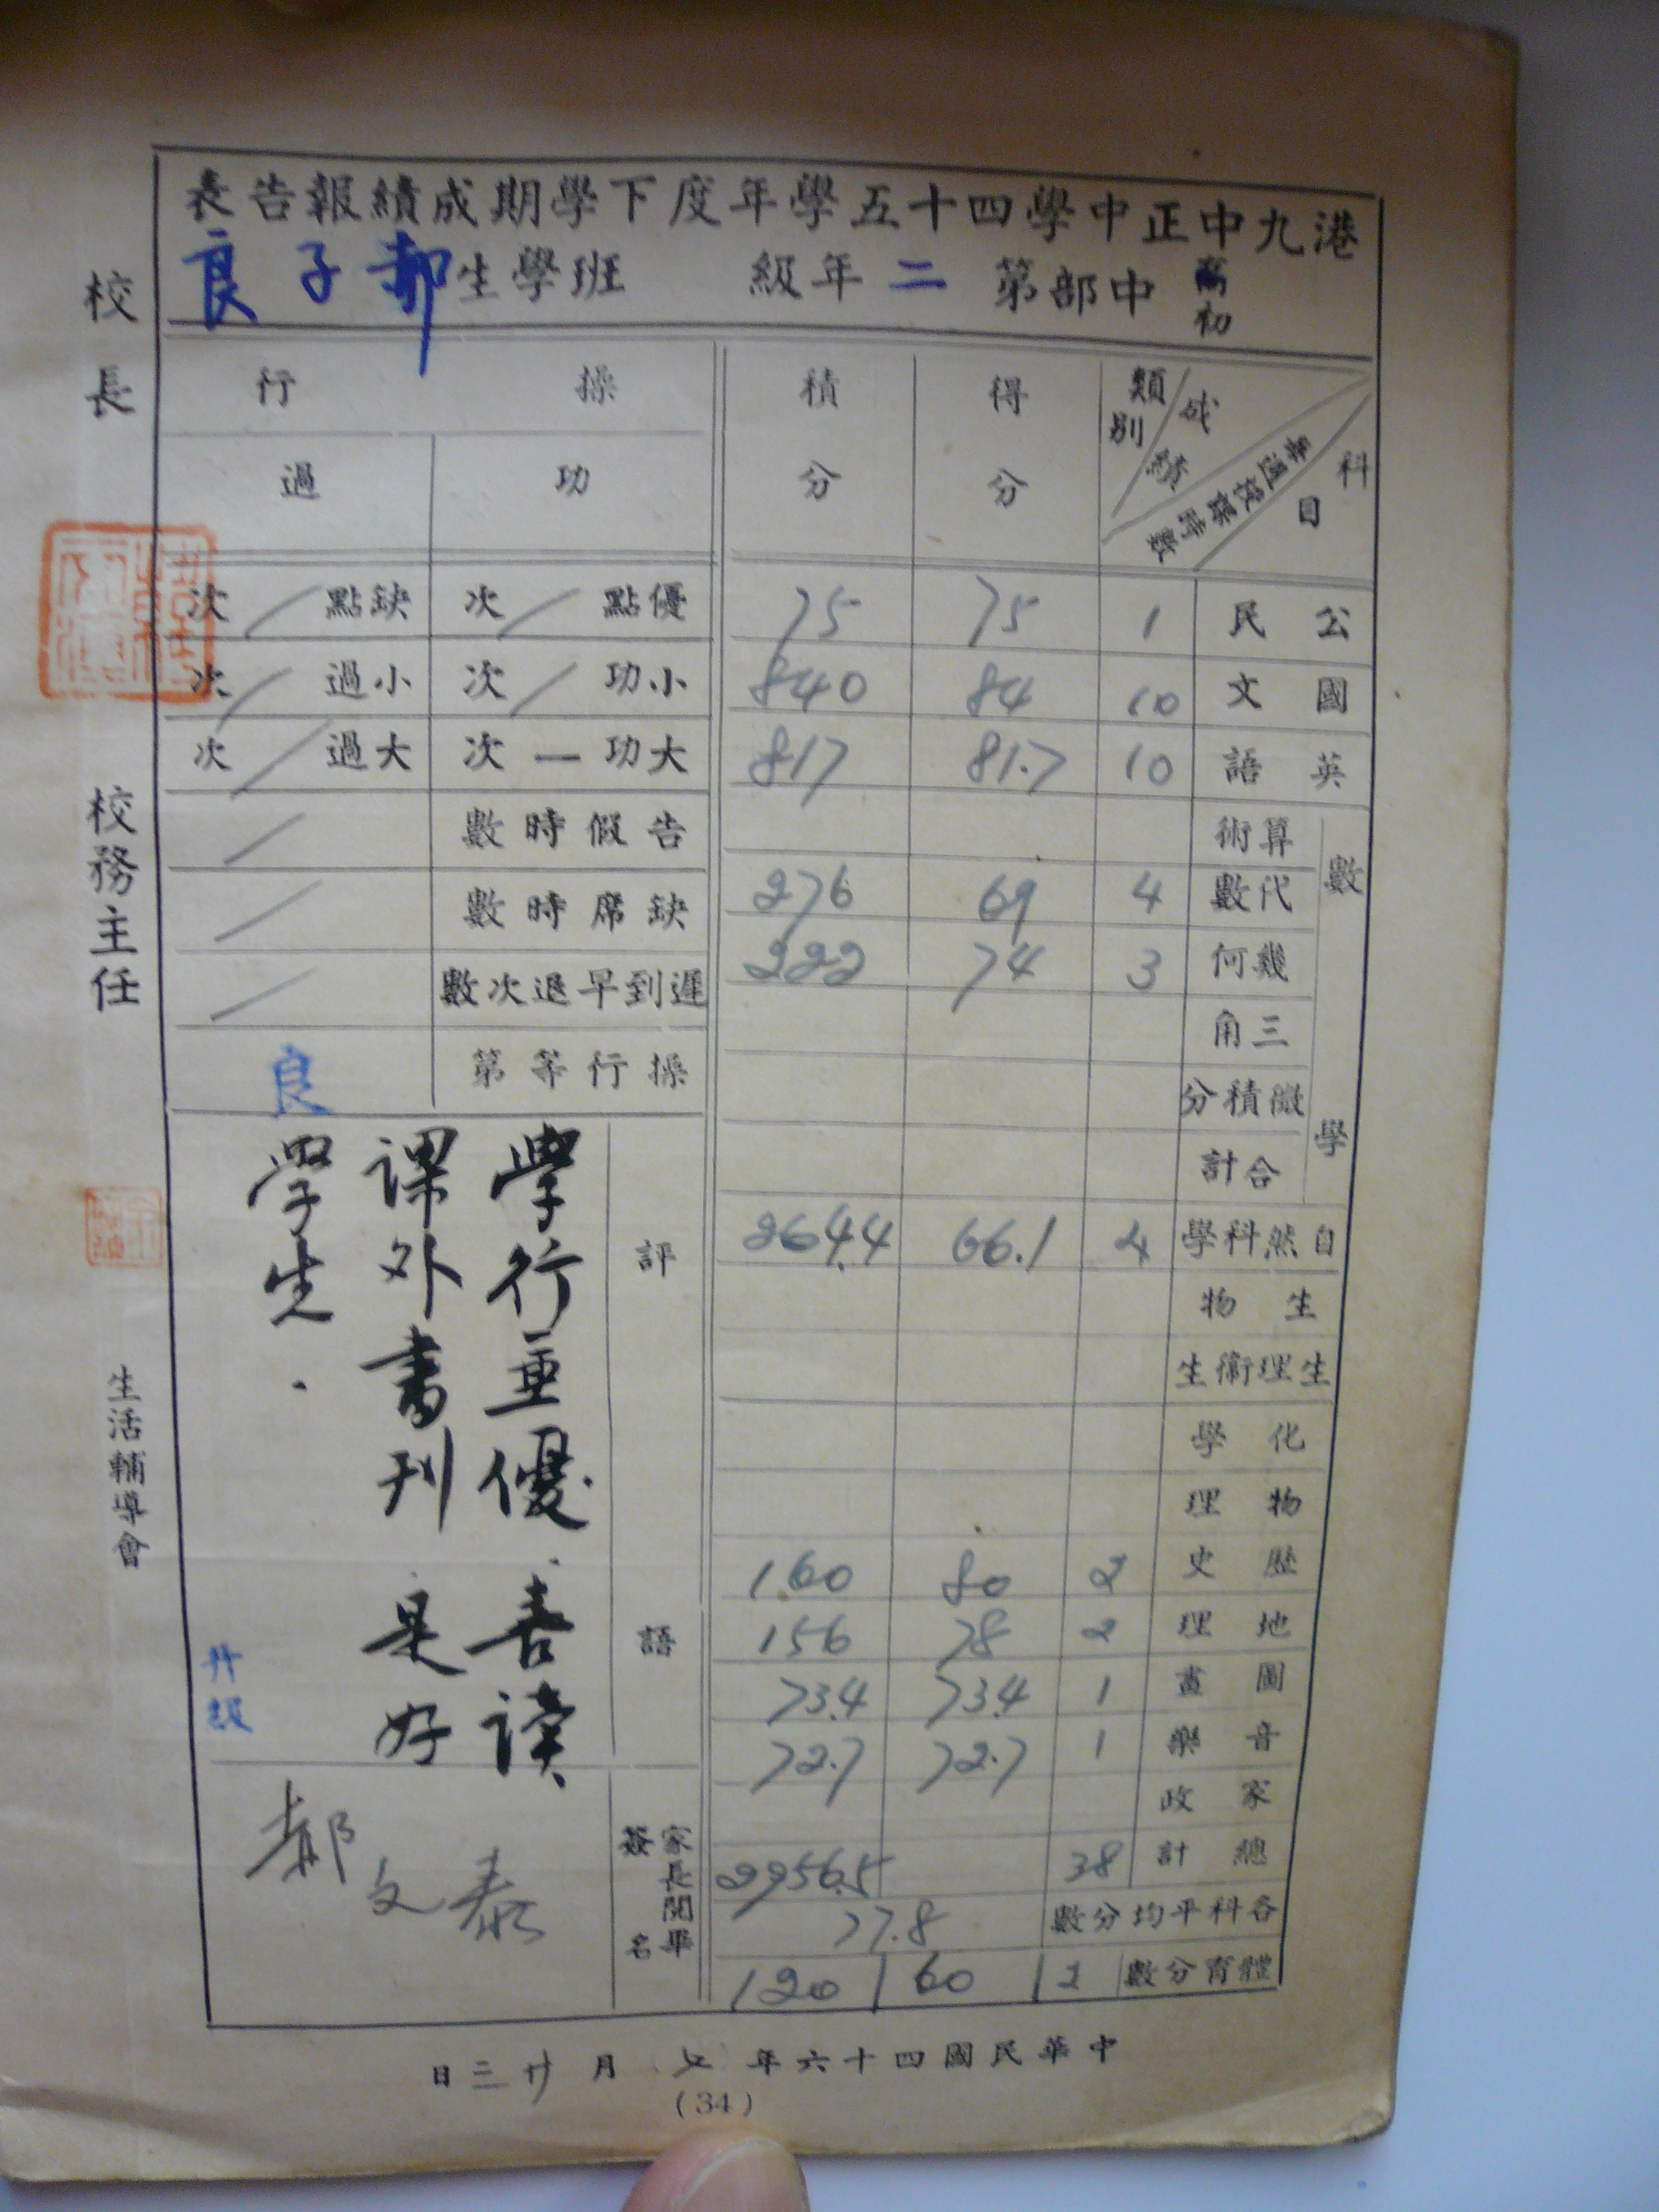 港九中正中學四十五學年度下學期成績報告表
高初中部第二年級 班學生郝子良
科目 每週授課時數 成績 類別 得分 積分
公民 1 75 75
國文 10 84 840
英語 10 81.7 817
數學
算術
代數 4 69 276
幾何 3 74 222
三角
微積分
合計
自然科學 4 66.1 264.4
生物
生理衛生
化學
物理
歷史 2 80 160
地理 2 78 156
圖畫 1 73.4 73.4
音樂 1 72.7 72.7
家政
總計 38 2956.5
各科平均分數 77.8
體育分數 2 60 120
操行
功 過
優點 / 次 缺點 / 次
小功 / 次 小過 / 次
大功 一 次 大過 / 次
告假時數 /
缺席時數 /
遲到早退次數 /
操行等第 良
評語
學行並優.善讀
課外書刊是好
學生.
升級
家長閱畢簽名
郝文泰
校長
校務主任
生活輔導會
中華民國四十六年七月廿三日
(34)